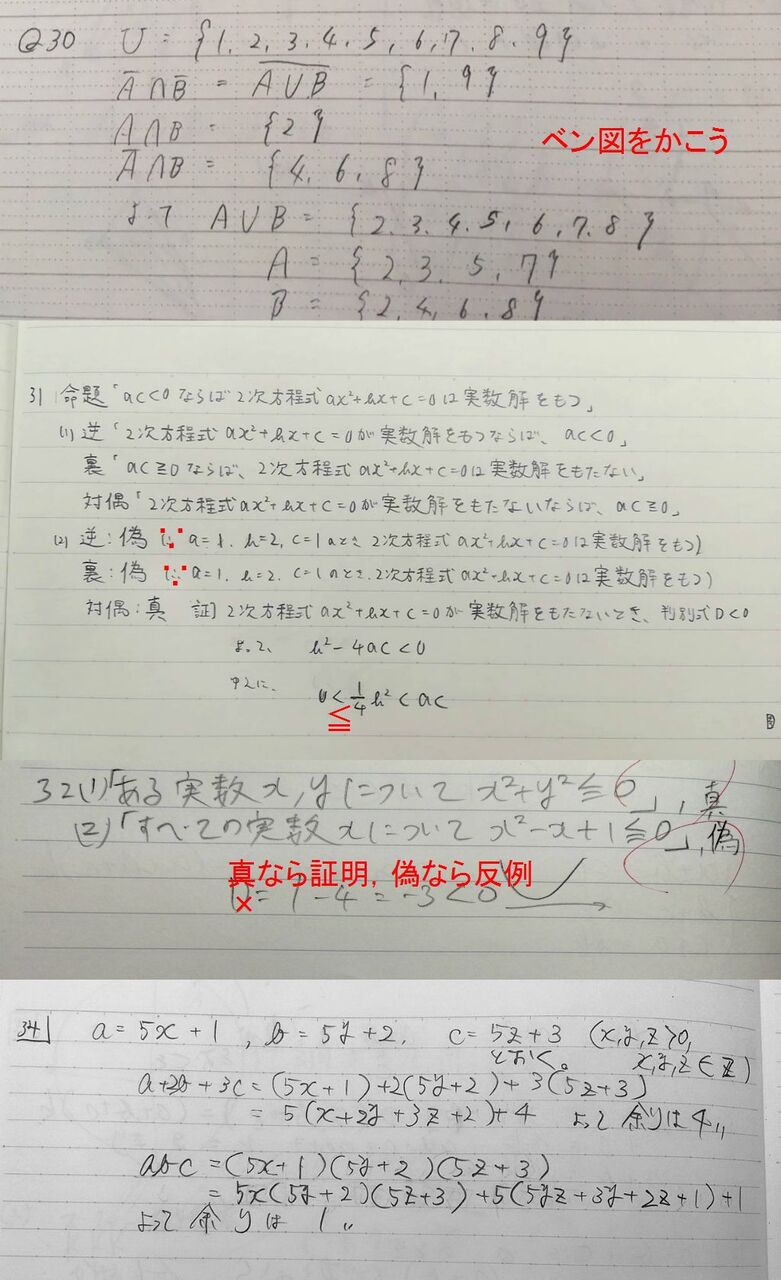 Q30 U = {1, 2, 3, 4, 5, 6, 7, 8, 9}
A̅∩B̅ = \overline{A∪B} = {1, 9}
A∩B = {2}
ベン図をかこう
A̅∩B = {4, 6, 8}
よって A∪B = {2, 3, 4, 5, 6, 7, 8}
A = {2, 3, 5, 7}
B = {2, 4, 6, 8}
31 命題「ac<0ならば2次方程式ax²+bx+c=0は実数解をもつ」
(1) 逆「2次方程式ax²+bx+c=0が実数解をもつならば、ac<0」
裏「ac≧0ならば、2次方程式ax²+bx+c=0は実数解をもたない」
対偶「2次方程式ax²+bx+c=0が実数解をもたないならば、ac≧0」
(2) 逆:偽 (∵a=1, b=2, c=1のとき、2次方程式ax²+bx+c=0は実数解をもつ)
裏:偽 (∵a=1, b=2, c=1のとき、2次方程式ax²+bx+c=0は実数解をもつ)
対偶:真 証] 2次方程式ax²+bx+c=0が実数解をもたないとき、判別式D<0
よって、 b²-4ac<0
ゆえに、 0<1/4 b²<ac
≦
32(1)「ある実数x,yについてx²+y²≦0」,真
(2)「すべての実数xについてx²-x+1≦0」,偽
真なら証明,偽なら反例
D=1-4=-3<0
×
34 a=5x+1, b=5y+2, c=5z+3 (x,y,z>0,
とおく。 x,y,z∈Z)
a+2b+3c=(5x+1)+2(5y+2)+3(5z+3)
=5(x+2y+3z+2)+4 よって余りは4〃
abc=(5x+1)(5y+2)(5z+3)
=5x(5y+2)(5z+3)+5(5yz+3y+2z+1)+1
よって余りは1〃